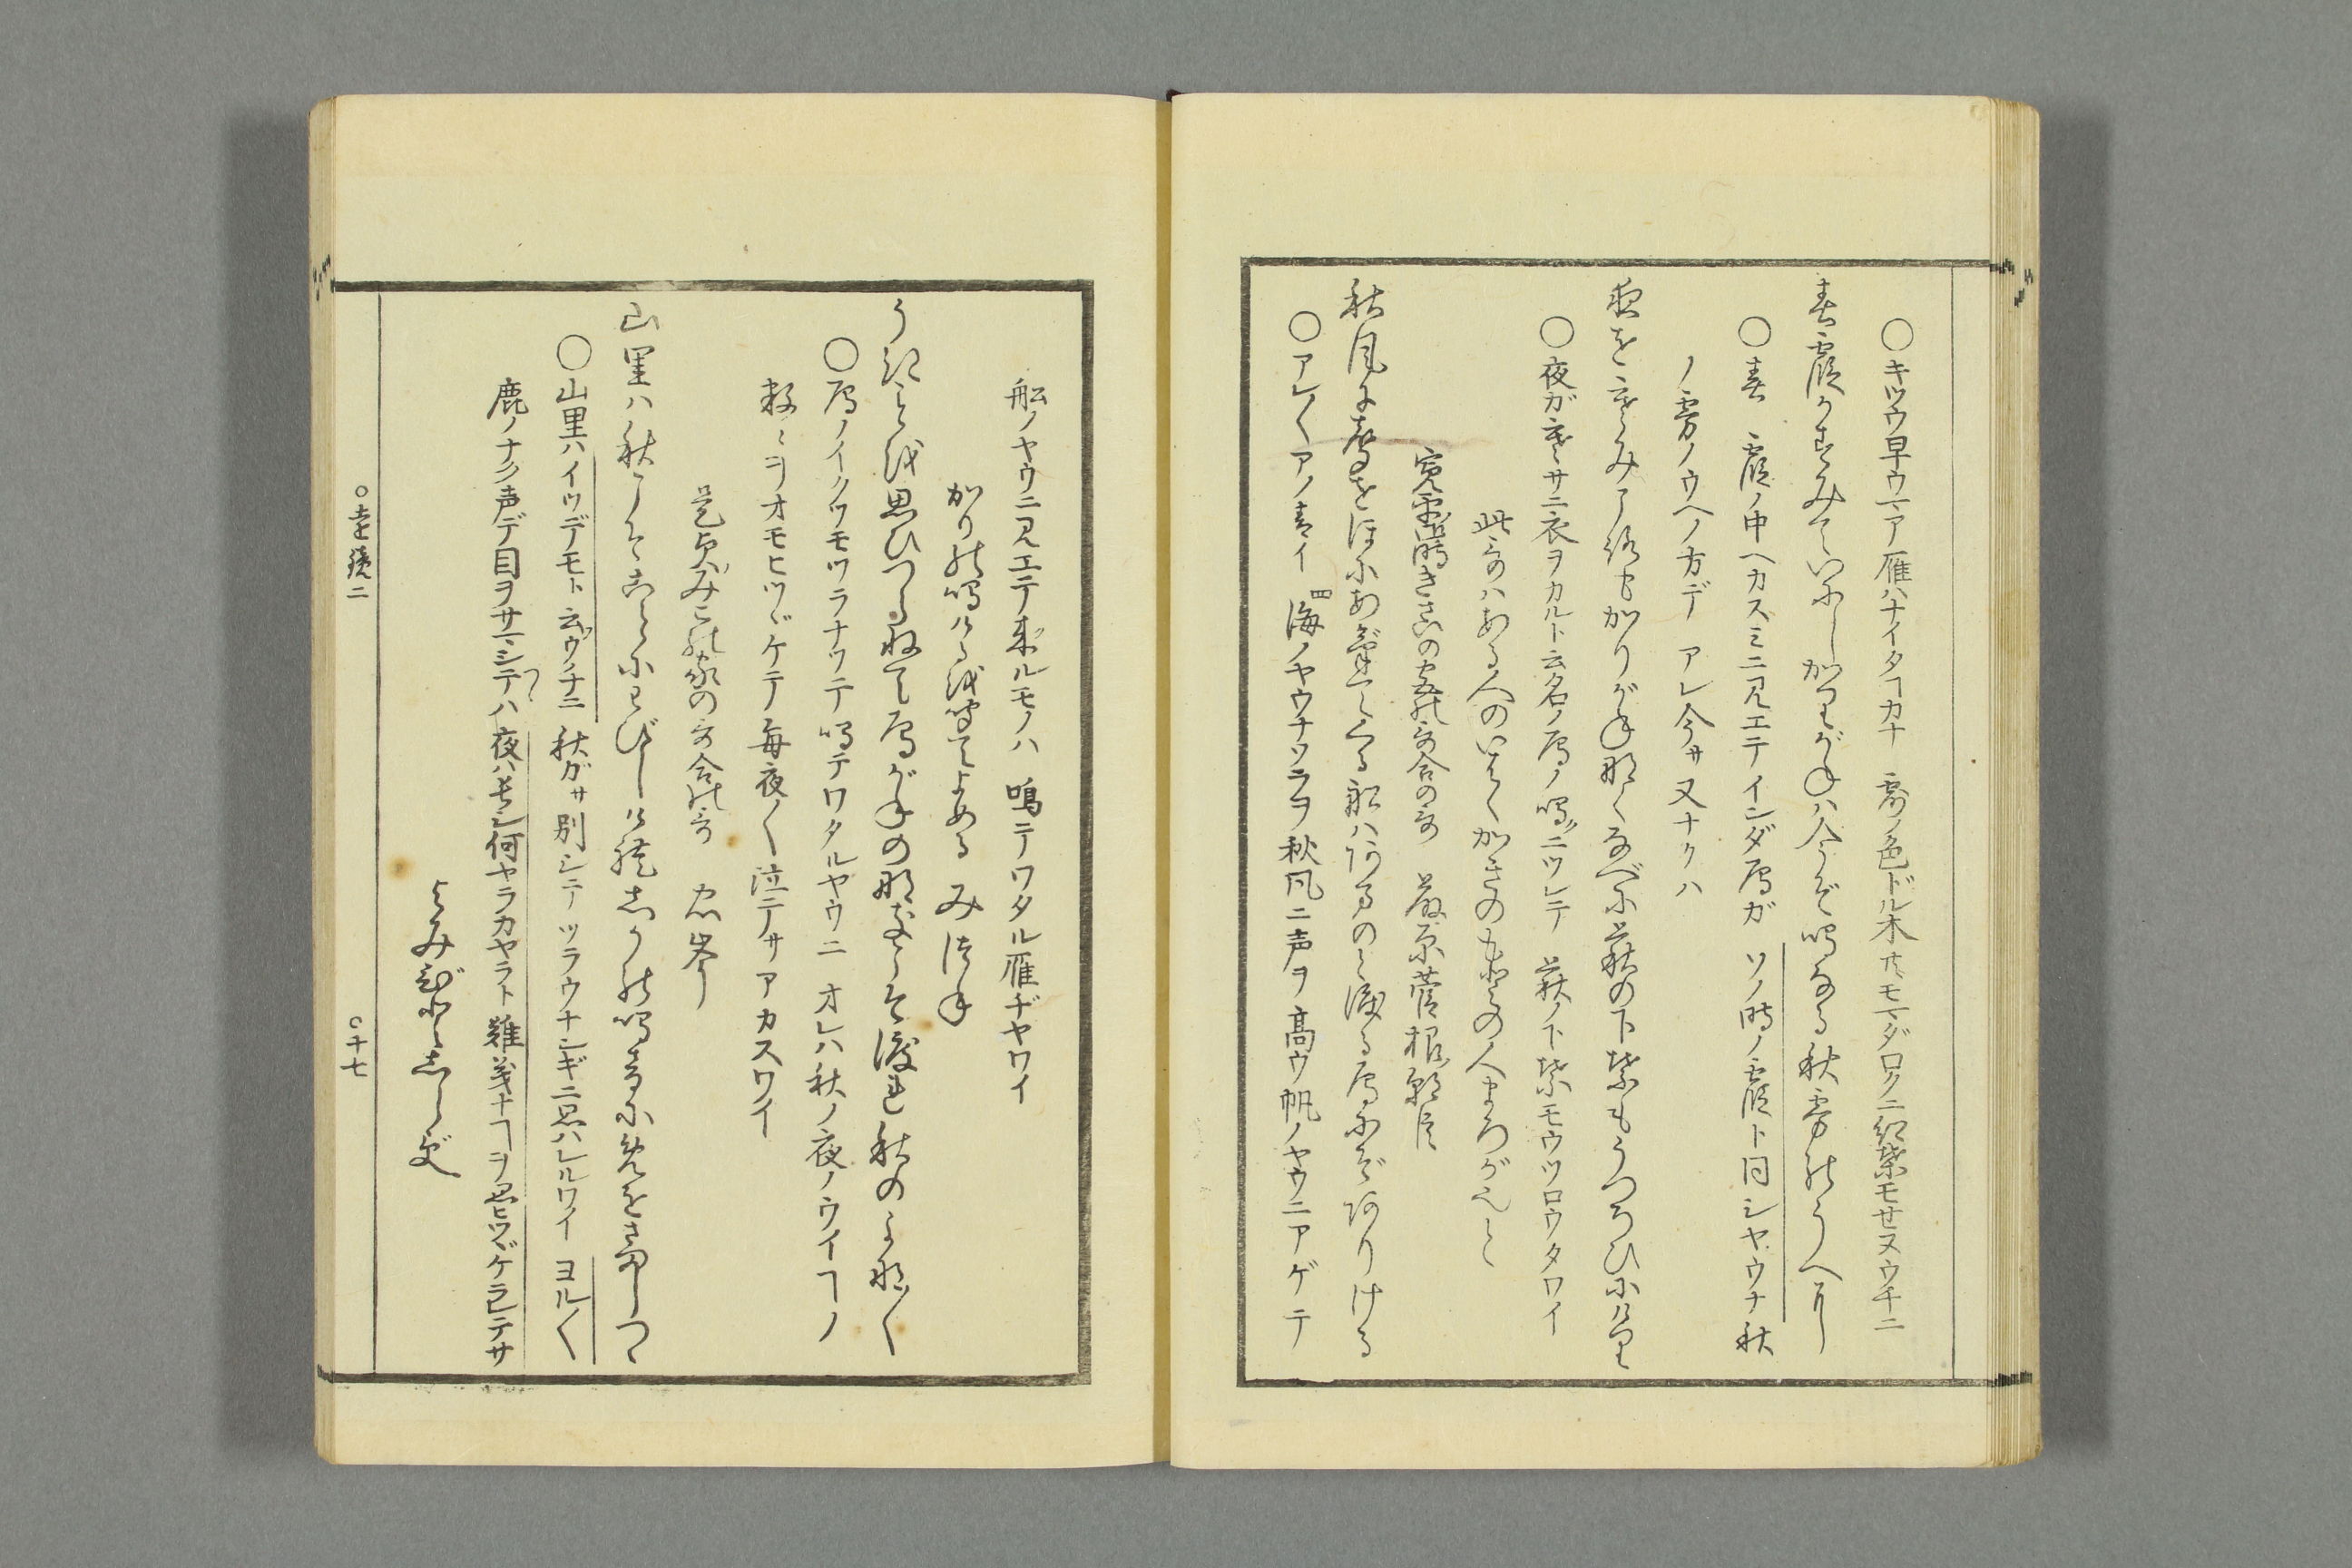 ○キツウ早ウマア雁ハナイタヿカナ 露ノ色ドル木𪜈モマダロクニ紅葉モセヌウチニ
春霞かすみていにしかりがねは今ぞ鳴なる秋霧のうへに
○春 霞ノ中ヘカスミニ見エテインダ雁ガ ソノ時ノ霞ト同シヤウナ 秋
ノ霧ノウヘノ方デ アレ今サ又ナクハ
夜を寒み衣かりがね鳴くなべに萩の下葉もうつろひにけり
○夜ガ寒サニ衣ヲカルト云名ノ雁ノ鳴ニツレテ 萩ノ下葉モウツロウタワイ
此哥ハある人のいはくかきのもとの人まろが也と
寛平御時きさいの宮の哥合の哥 藤原菅根朝臣
秋風に声をほにあげてくる船ハ天の戸渡る雁にぞありける
○アレ〱アノ青イ 海ノヤウナソラヲ 秋風ニ声ヲ 高ウ帆ノヤウニアゲテ
船ノヤウニ見エテ来ルモノハ 鳴テワタル雁ヂヤワイ
かりの鳴けるを聞てよめる みつね
うきことを思ひつらねて雁がねの鳴こそ渡れ秋のよな〱
○雁ノイクツモツラナツテ 鳴テワタルヤウニ オレハ秋ノ夜ノウイヿノ
数〻ヲオモヒツヾケテ 毎夜〱泣テサアカスワイ
是貞みこの家の哥合の哥 忠岑
山里ハ秋こそことにわびしけれしかの鳴音に目をさましつゝ
○山里ハイツデモト云ウチニ 秋ガサ別シテ ツラウナンギニ思ハレルワイ ヨル〱
鹿ノナク声デ目ヲサマシテハ 夜ハ長シ何ヤラカヤラト 難義ナヿヲ思ヒツヾケラレテサ
よみ人しらず
○遠鏡二 ○十七